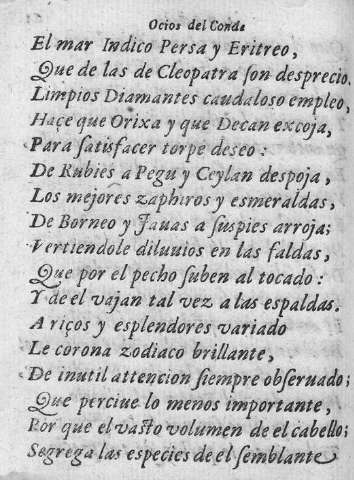 Ocios del Conde
El mar Indico Persa y Eritreo,
Que de las de Cleopatra son desprecio.
Limpios Diamantes caudaloso empleo,
Haçe que Orixa y que Decan escoja,
Para satisfacer torpe deseo:
De Rubies a Pegu y Ceylan despoja,
Los mejores zaphiros y esmeraldas,
De Borneo y Jauas a suspies arroja;
Vertiendole diluuios en las faldas,
Que por el pecho suben al tocado:
Y de el vajan tal vez a las espaldas.
A riços y esplendores variado
Le corona zodiaco brillante,
De inutil attencion siempre obseruado;
Que perciue lo menos importante,
Por que el vasto volumen de el cabello;
Segrega las especies de el semblante